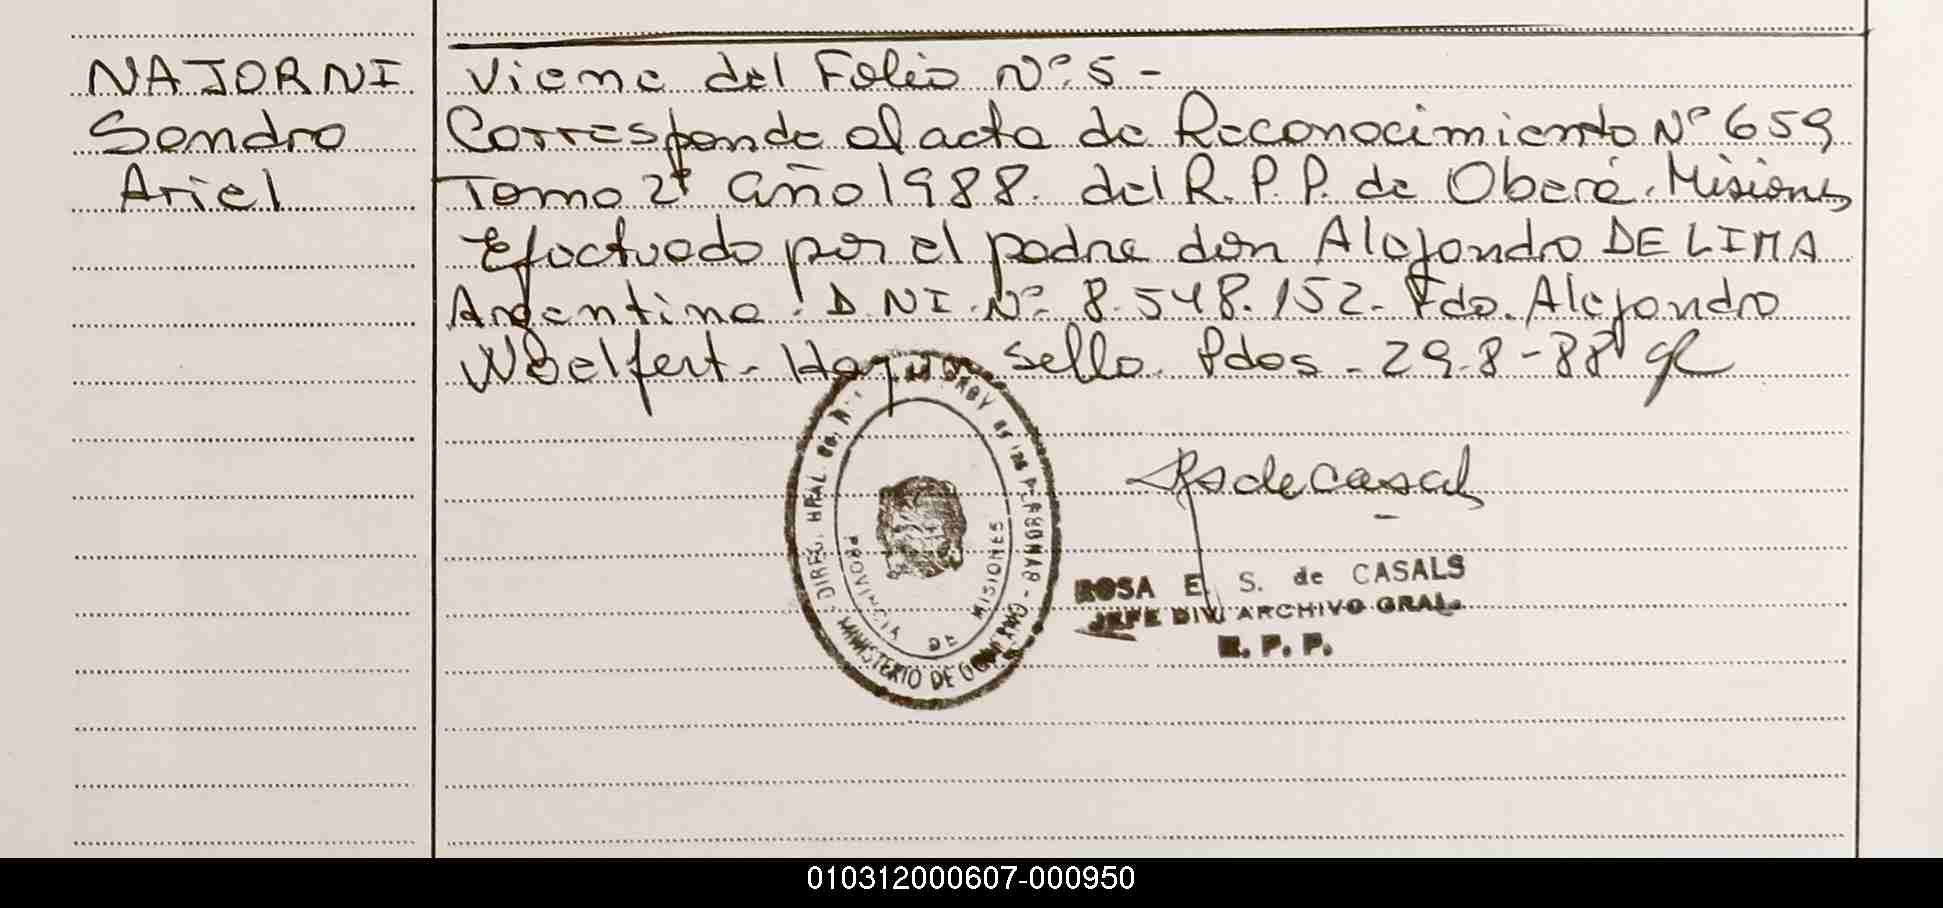 NAJORNI
Sandro
Ariel
Viene del Folio Nº 5 -
Corresponde al acta de Reconocimiento Nº 659
Tomo 2º año 1988. del R.P.P. de Oberá. Misiones
Efectuado por el padre don Alejandro DE LIMA
Argentino. D.NI. Nº 8.548.152. Fdo. Alejandro
Woelfert - Hay un sello. Pdos. 29.8-88
DIREC. GRAL.
MINISTERIO DE GOBIERNO
PROVINCIA DE MISIONES
ROSA E. S. de CASALS
JEFE DIV. ARCHIVO GRAL.
R. P. P.
010312000607-000950